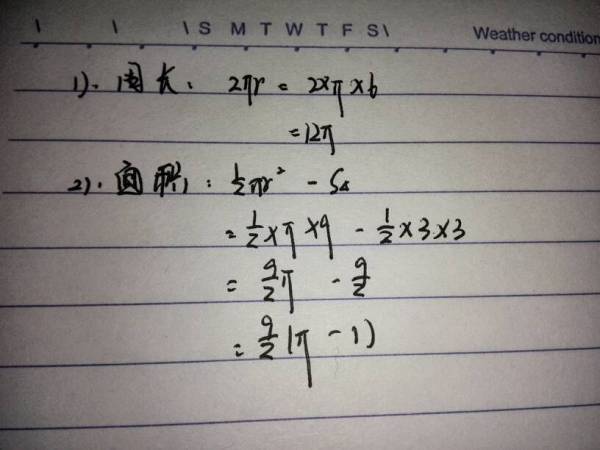 S M T W T F S Weather condition
1). 周长: 2πr = 2×π×6
=12π
2). 面积: ½πr² - S△
= ½×π×9 - ½×3×3
= 9/2π - 9/2
= 9/2(π - 1)